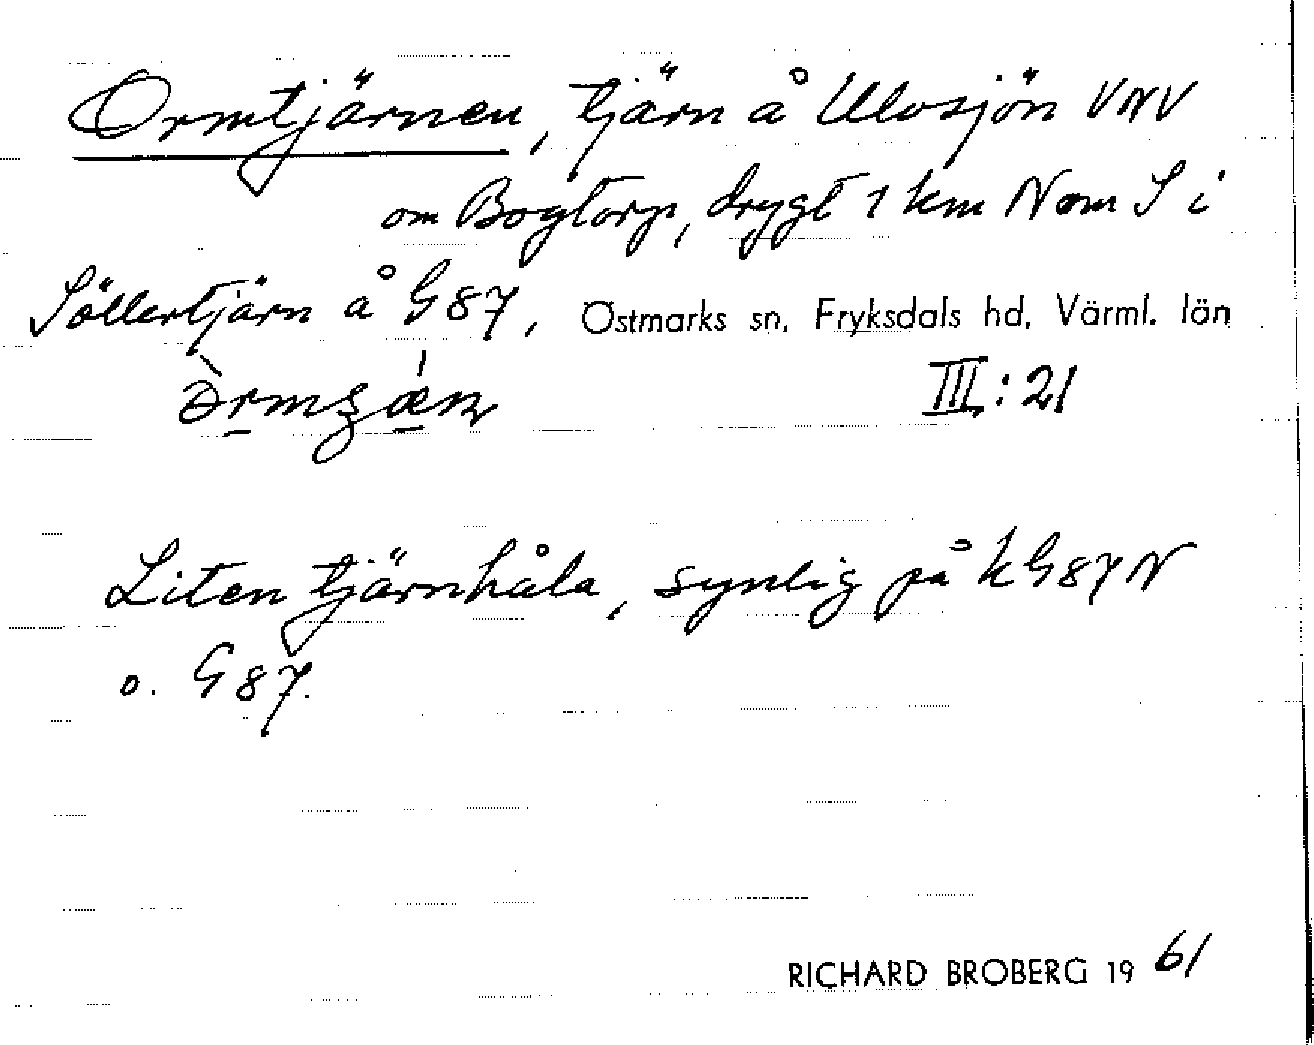 Ormtjärnen, tjärn å Ulvsjön VNV
om Bogtorp, drygt 1 km N om S i
Söllertjärn å G87, Östmarks sn, Fryksdals hd, Värml. län
III:21
Liten tjärnhåla, synlig på k G87 N
o. G 87.
RICHARD BROBERG 19 61